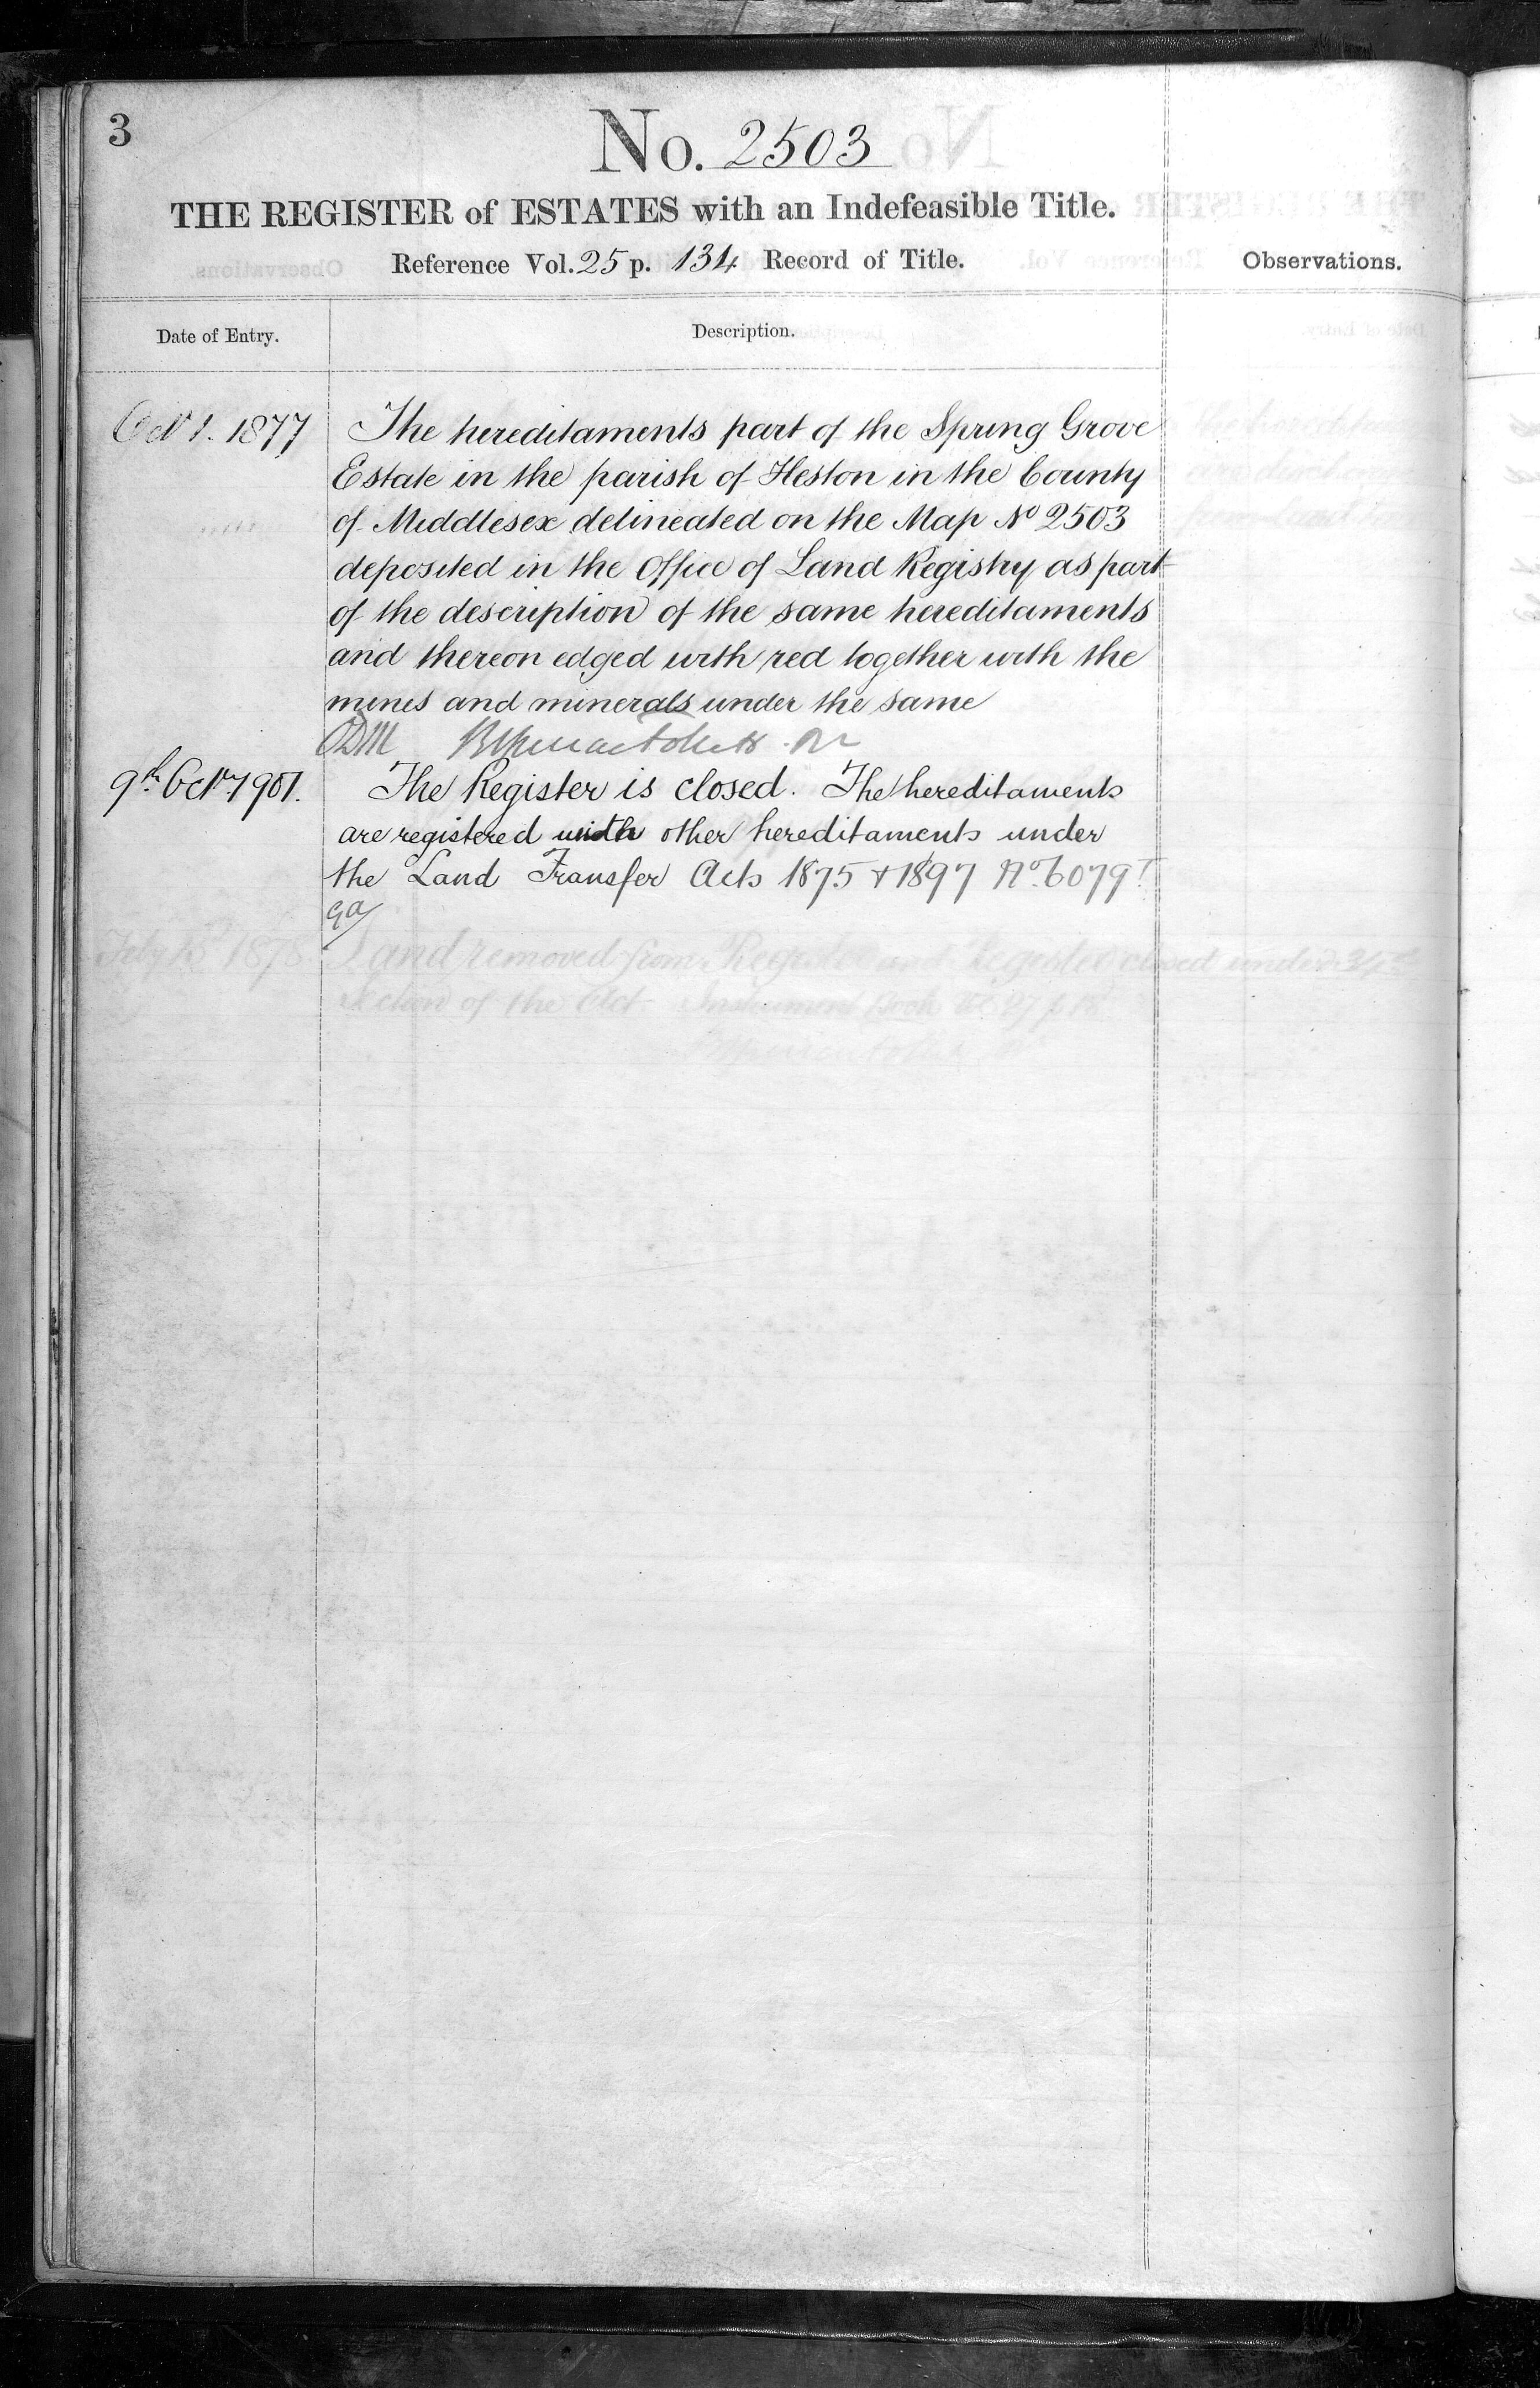 3
No. 2503
THE REGISTER of ESTATES with an Indefeasible Title.
Reference Vol. 25 p. 134 Record of Title.
Observations.
Date of Entry.
Description.
Oct 1. 1877
The hereditaments part of the Spring Grove
Estate in the parish of Heston in the County
of Middlesex delineated on the Map No 2503
deposited in the Office of Land Registry as part
of the description of the same hereditaments
and thereon edged with red together with the
mines and minerals under the same
9th Octr 1901.
The Register is closed. The hereditaments
are registered with other hereditaments under
the Land Transfer Acts 1875 & 1897 No. 6079
July 1878
Land removed from Register and Register closed under 34th
Section of the Act. Instrument Book